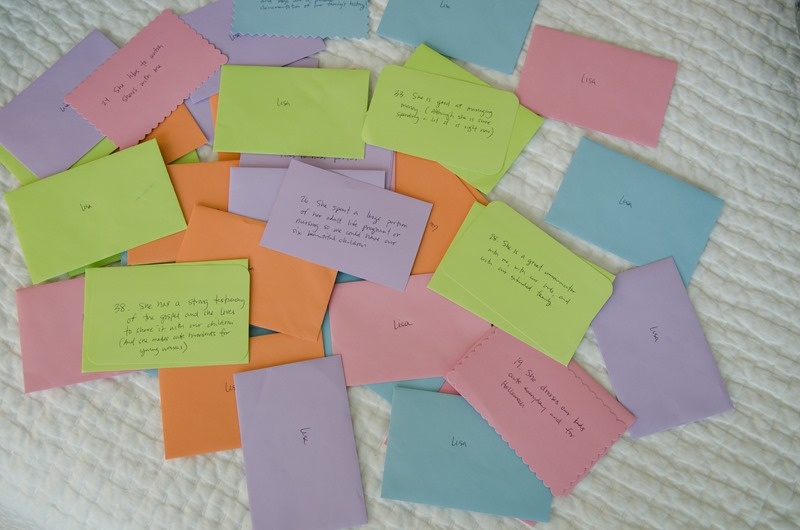 documentation of our family's history
Lisa
Lisa
21. She likes to watch
shows with me
Lisa
Lisa
33. She is good at managing
money (although she is
spending a lot of it right now)
Lisa
Lisa
26. She spent a large portion
of her adult life pregnant or
nursing so we could have our
six beautiful children
28. She is a great communicator
with me, with our kids, and
with our extended family
38. She has a strong testimony
of the gospel and she loves
to share it with our children
(and she makes cute handouts for
young women)
Lisa
Lisa
19. She dresses our kids
cute everyday and for
Halloween
Lisa
Lisa
Lisa